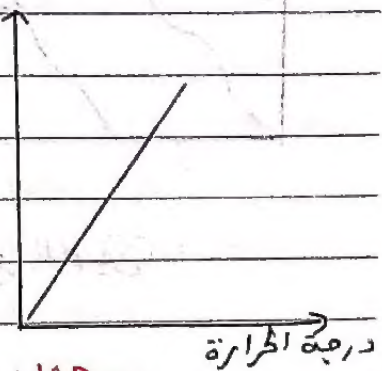 درجة الحرارة